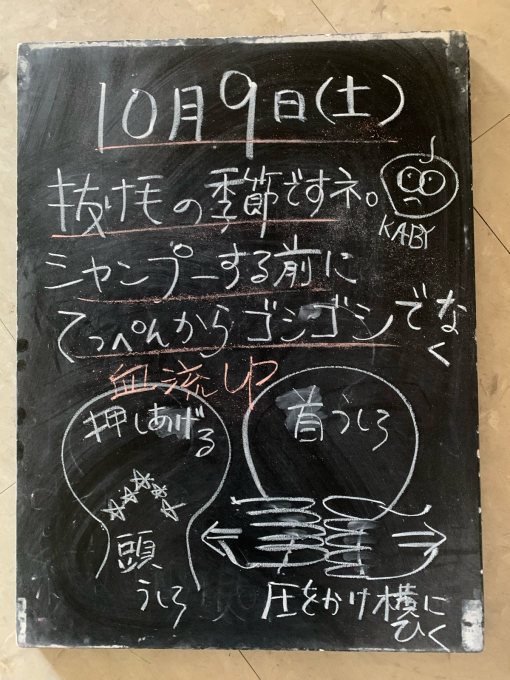 10月9日(土)
抜け毛の季節ですネ。
KABY
シャンプーする前に
てっぺんからゴシゴシでなく
血流UP
押しあげる
頭
うしろ
首うしろ
圧をかけ横にひく